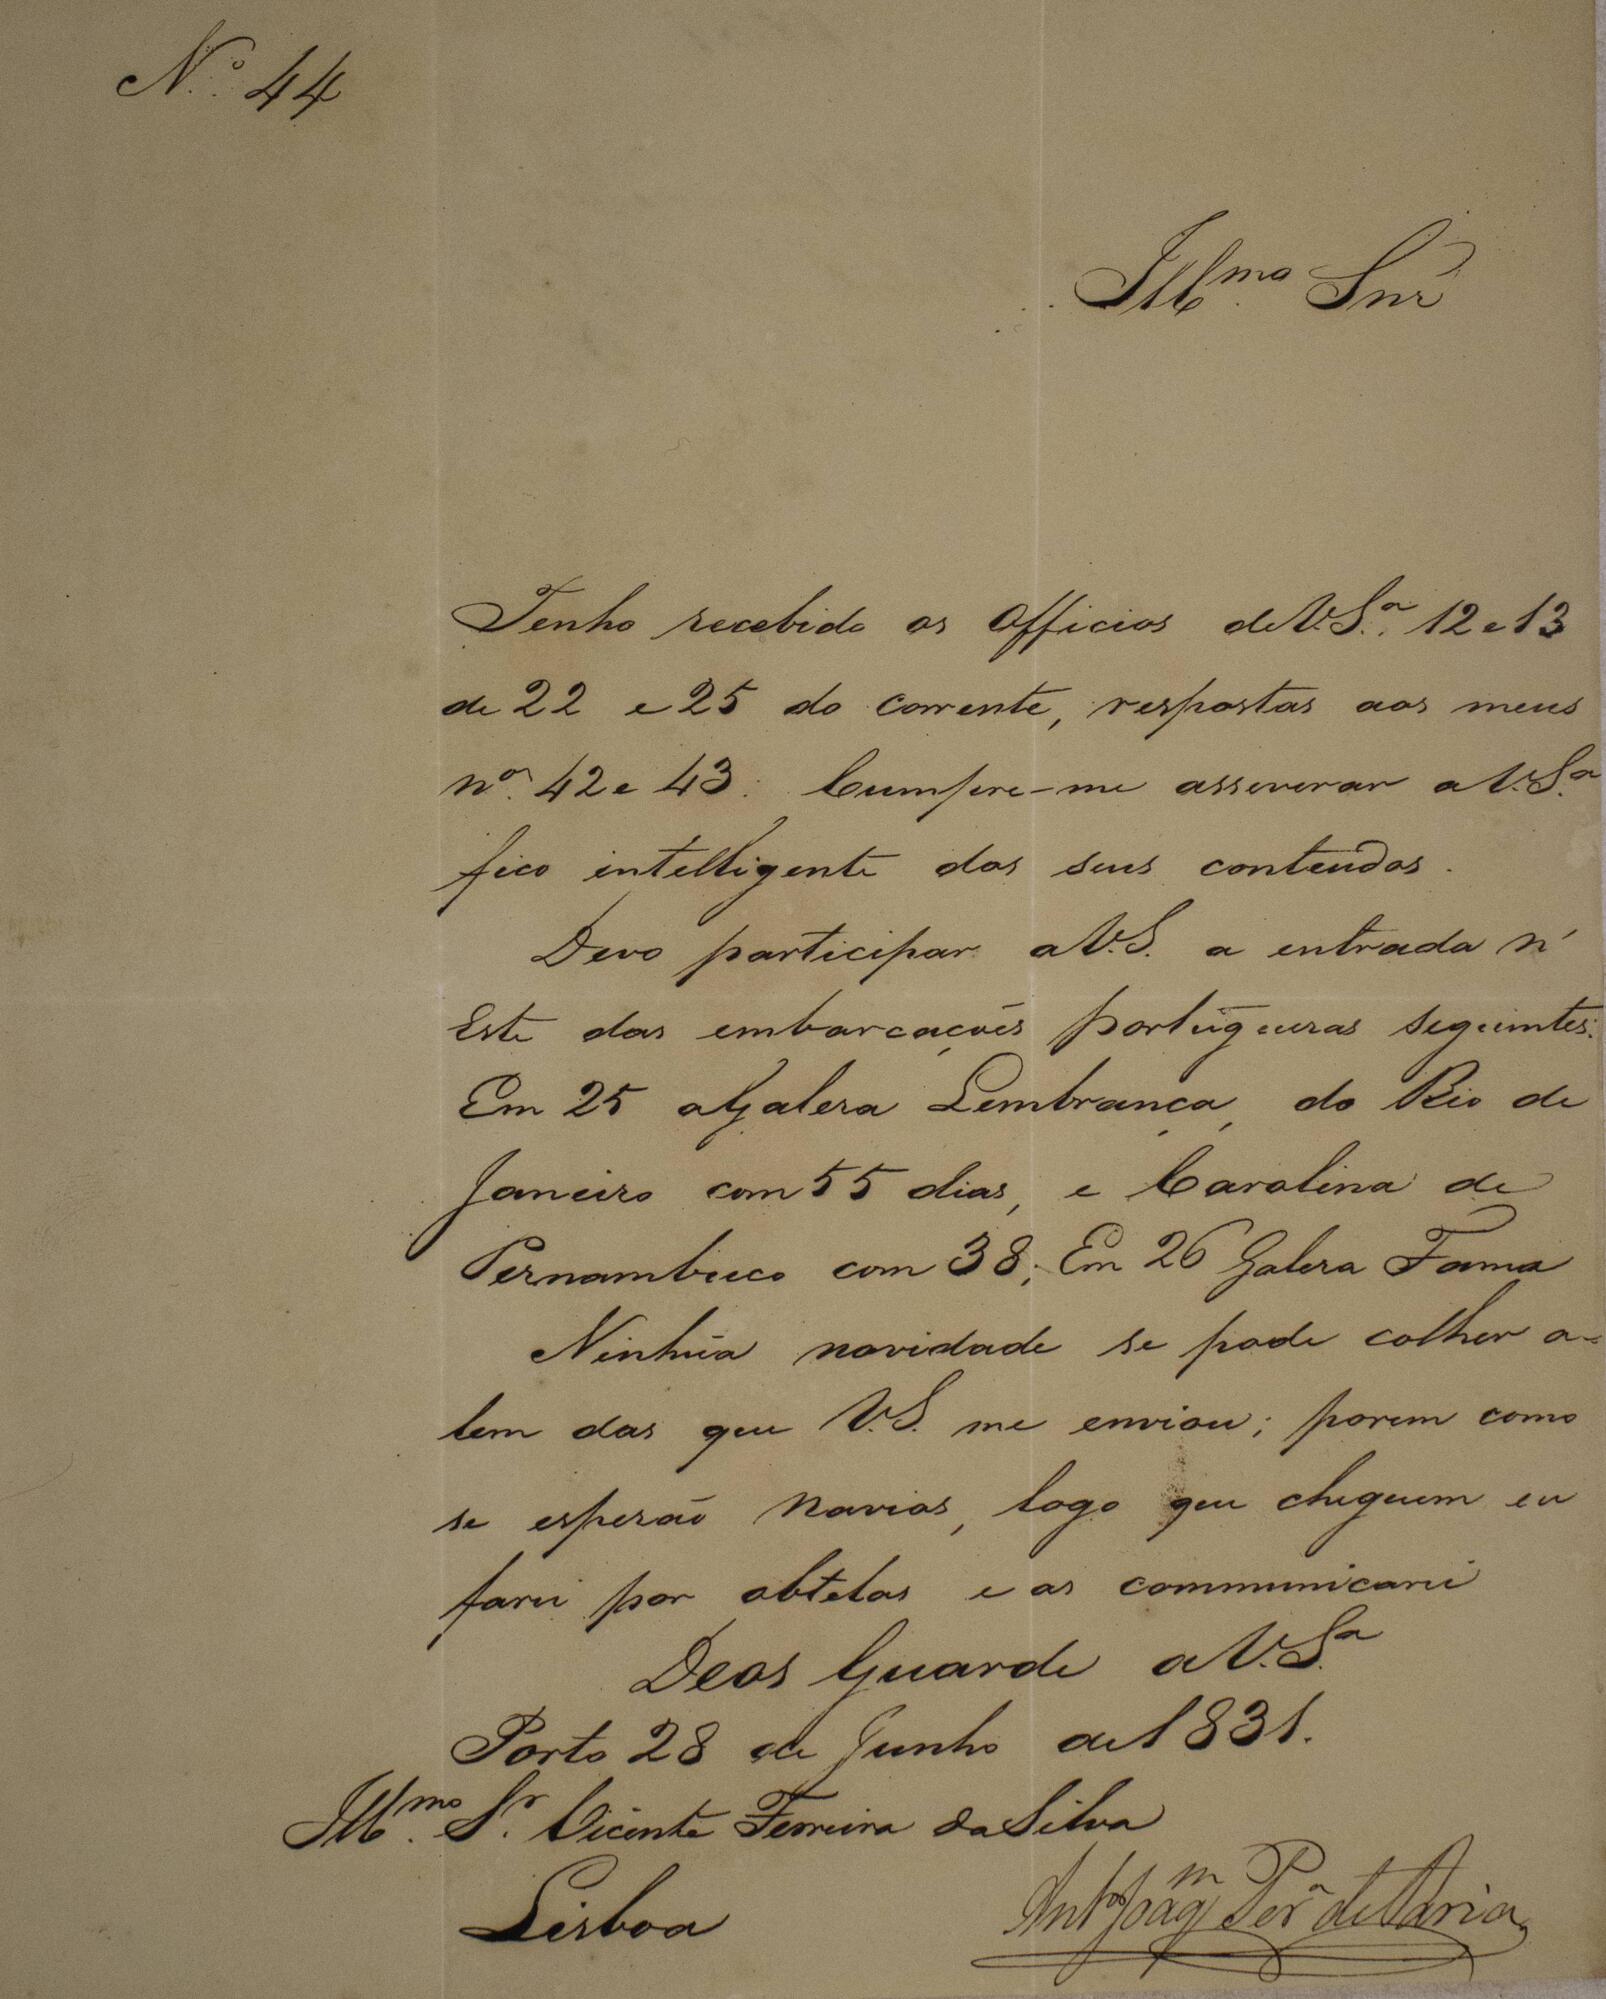 N.º 44
Ill.mo Snr
Tenho recebido os Officios de V.S.ª 12 e 13
de 22 e 25 do corrente, respostas aos meus
nos. 42 e 43. Cumpre-me asseverar a V.S.ª
fico intelligente dos seus conteudos.
Devo participar a V.S. a entrada n'
Este das embarcações portuguezas seguintes:
Em 25 a Galera Lembrança, do Rio de
Janeiro com 55 dias, e Carolina de
Pernambuco com 38; Em 26 Galera Fama
Ninhũa novidade se pode colher a-
lem das que V.S. me enviou; porem como
se esperão Navios, logo que cheguem eu
farei por obtelas e as communicarei
Deos Guarde a V.S.ª
Porto 28 de Junho de 1831.
Ill.mo S.r Vicente Ferreira da Silva
Lisboa
Ant.o Joaq.m Per.ª de Faria